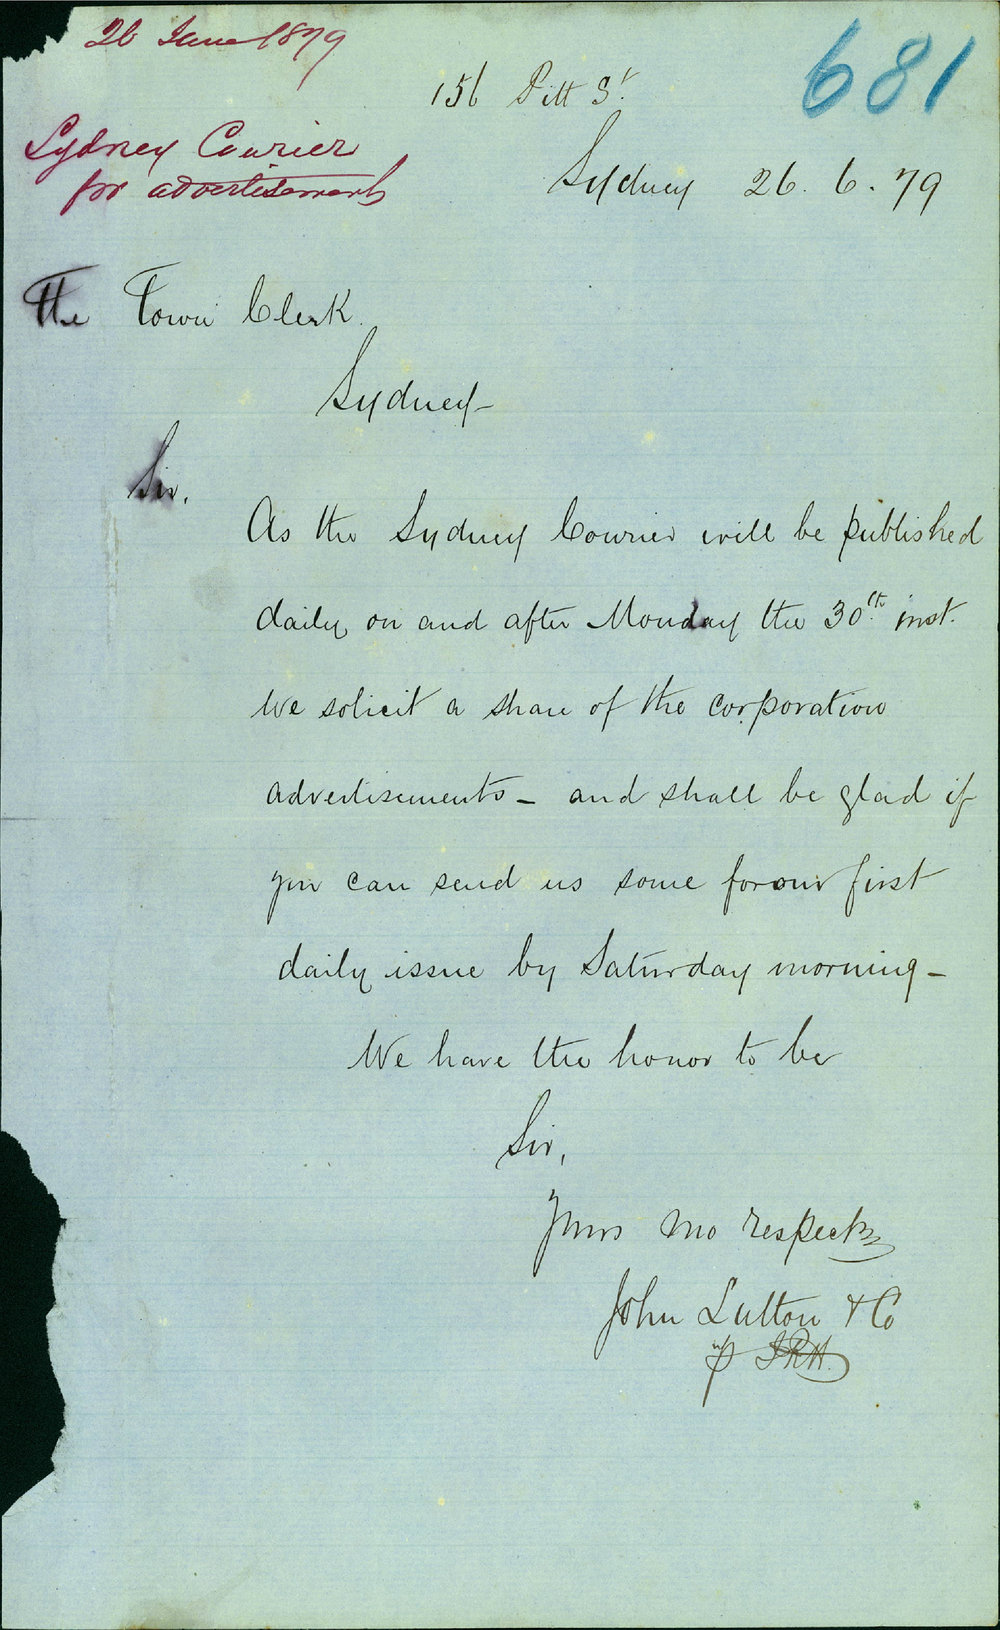 26 June 1879
681
156 Pitt St.
Sydney Courier
for advertisements
Sydney 26. 6. 79
The Town Clerk.
Sydney-
Sir,
As the Sydney Courier will be published
daily on and after Monday the 30th. inst.
We solicit a share of the corporation
advertisements - and shall be glad if
you can send us some for our first
daily issue by Saturday morning -
We have the honor to be
Sir,
Yours mo respectly
John Sutton & Co